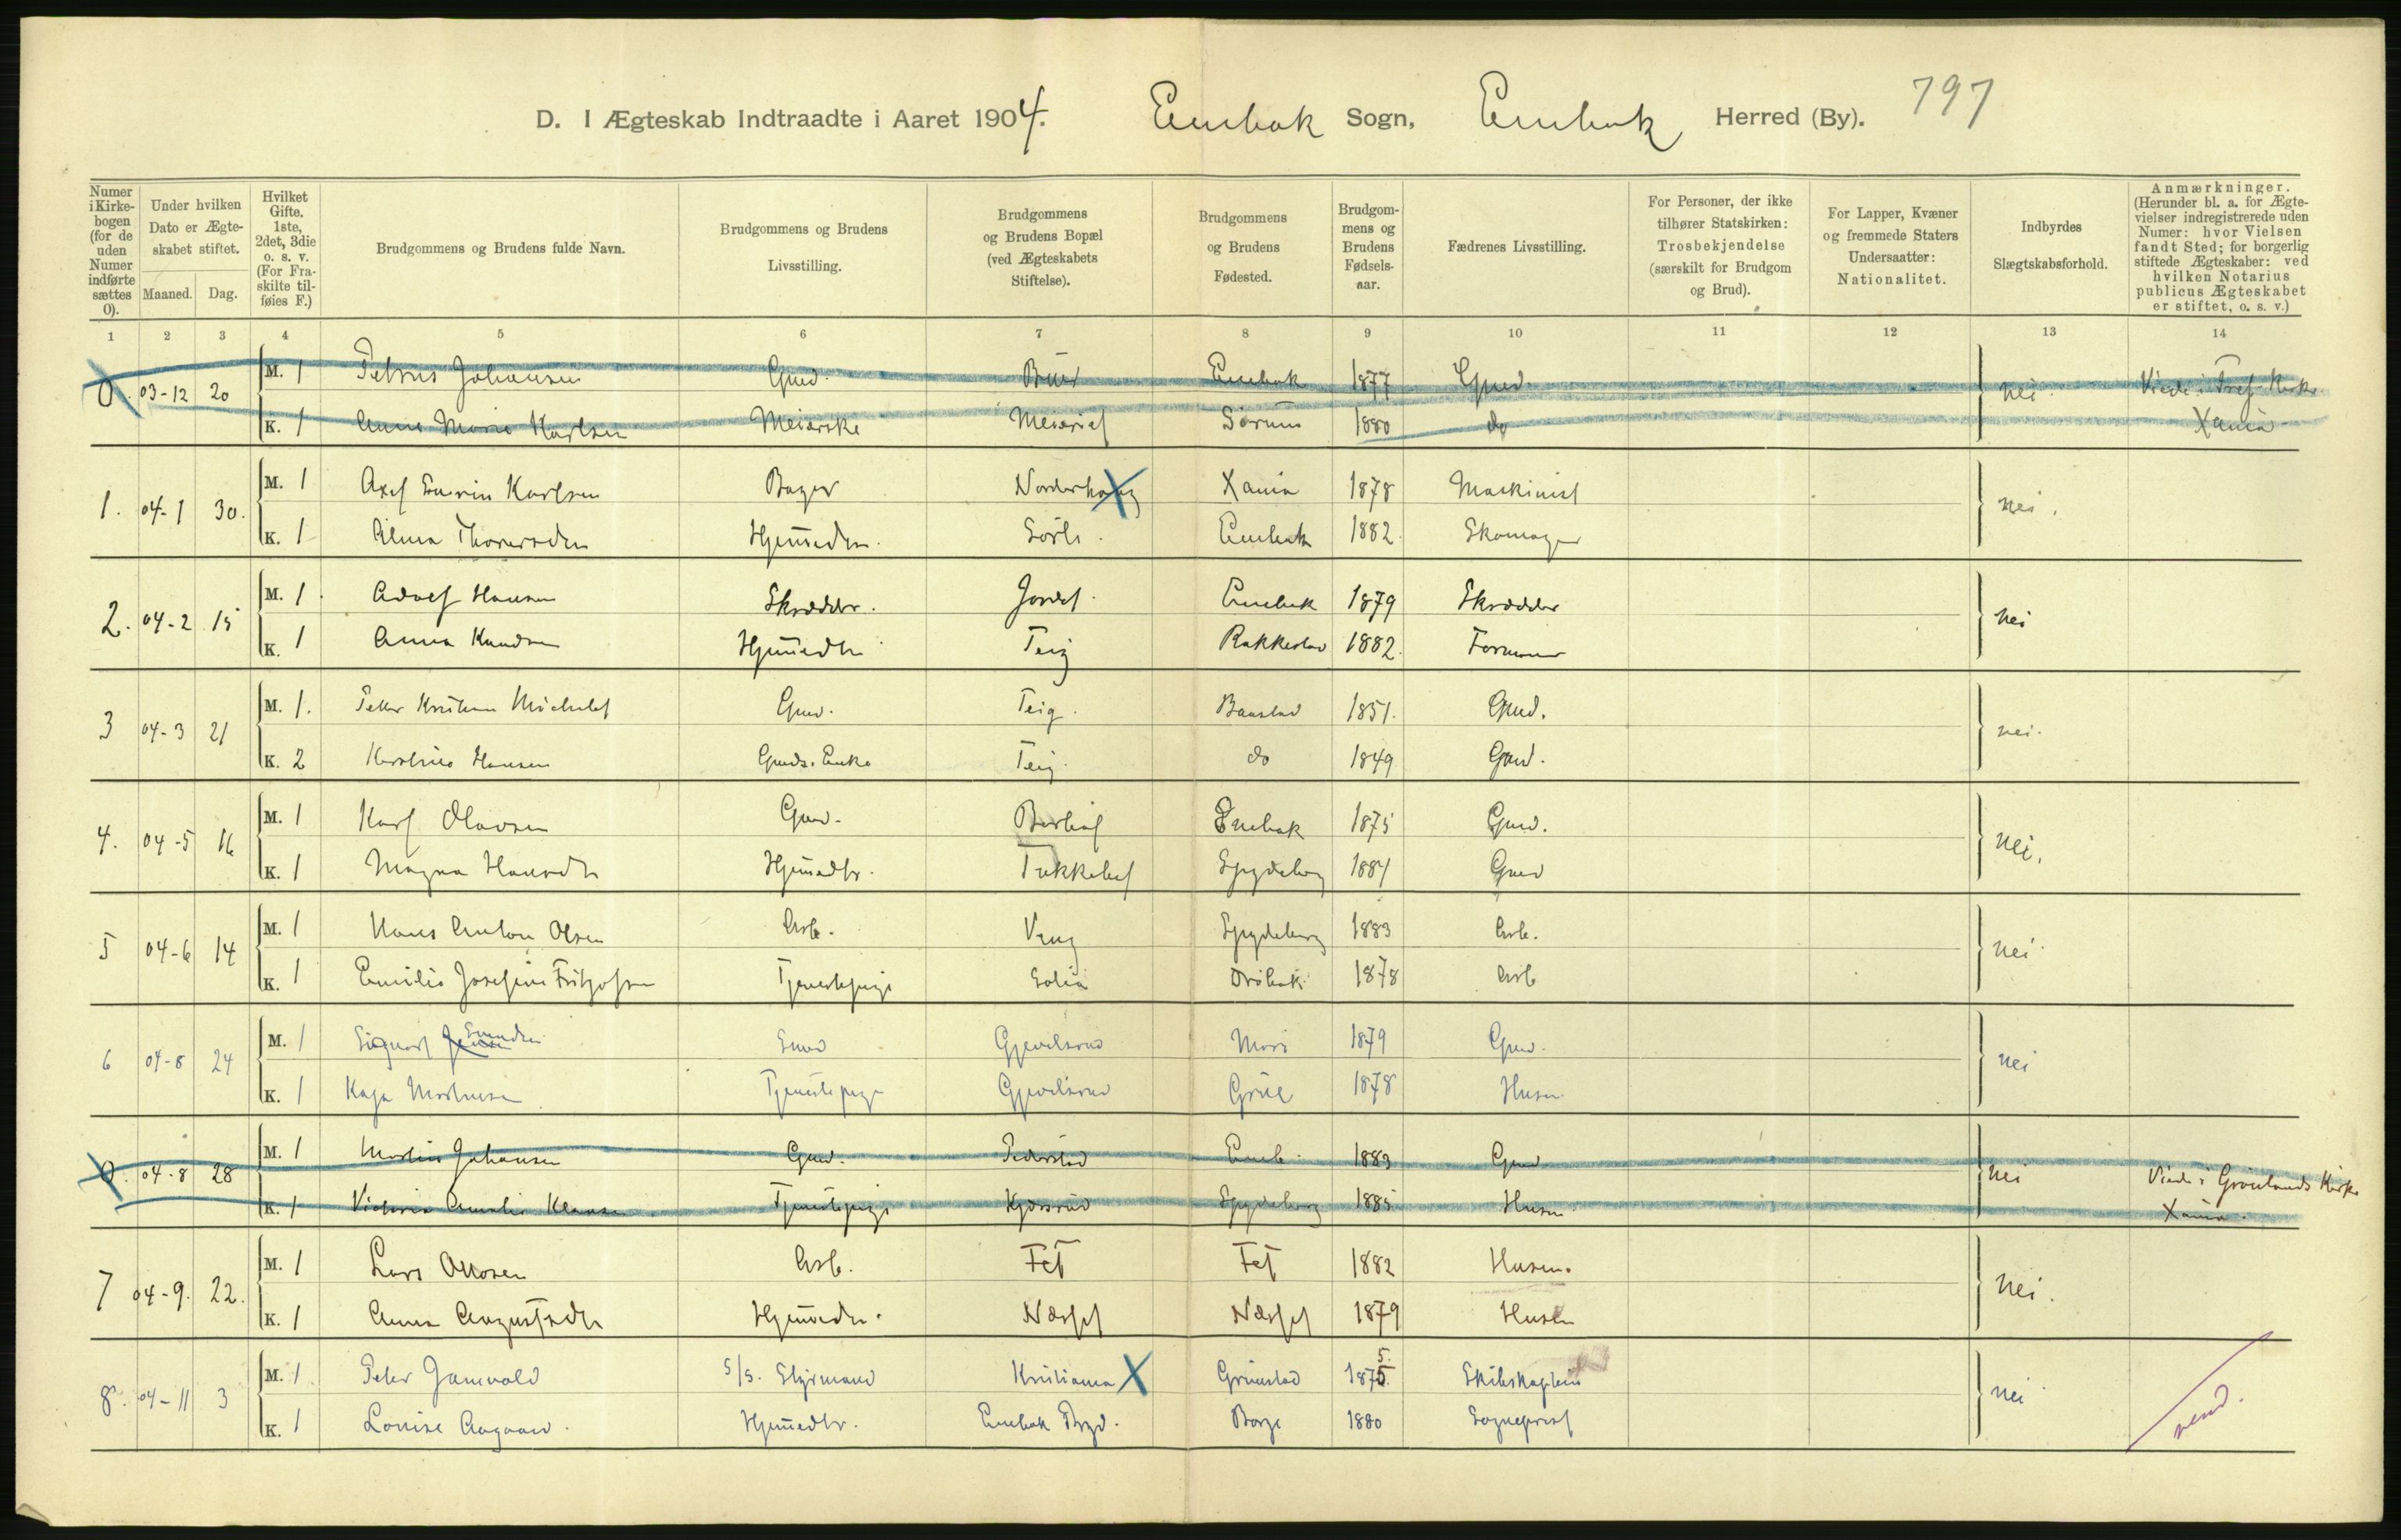 797
D. I Ægteskab Indtraadte i Aaret 1904. Enebak Sogn, Enebak Herred (By).
Numer i Kirkebogen (for de uden Numer indførte sættes 0).
Under hvilken Dato er Ægteskabet stiftet.
Maaned. Dag.
Hvilket Gifte. 1ste, 2det, 3die o. s. v. (For Fraskilte tilføies F.)
Brudgommens og Brudens fulde Navn.
Brudgommens og Brudens Livsstilling.
Brudgommens og Brudens Bopæl (ved Ægteskabets Stiftelse).
Brudgommens og Brudens Fødested.
Brudgommens og Brudens Fødselsaar.
Fædrenes Livsstilling.
For Personer, der ikke tilhører Statskirken: Trosbekjendelse (særskilt for Brudgom og Brud).
For Lapper, Kvæner og fremmede Staters Undersaatter: Nationalitet.
Indbyrdes Slægtskabsforhold.
Anmærkninger. (Herunder bl. a. for Ægtevielser indregistrerede uden Numer: hvor Vielsen fandt Sted; for borgerlig stiftede Ægteskaber: ved hvilken Notarius publicus Ægteskabet er stiftet, o. s. v.)
1 2 3 4 5 6 7 8 9 10 11 12 13 14
0. 03-12 20 M. 1 Petrus Johansen Gmd. Enebak 1877 Gmd. nei. Viede i Tref. Kirke
K. 1 Anne Marie Karlsen Meierske Meieriet Sørum 1880 do Xania
1. 04-1 30. M. 1 Axel Karlsen Bager Norderhaug Xania 1878 Maskinist nei.
K. 1 Alma Thorersden Hjemmedtr. Enebak 1882. Skomager
2. 04-2 15 M. 1. Adolf Hansen Skrædder. Jordet. Enebak 1879 Skrædder nei
K. 1 Anna Knudsen Hjemmedtr Teig Rakkestad 1882. Formand
3 04-3 21 M. 1. Peter Kristian Michelet Gmd. Teig. Baastad 1851. Gmd. nei.
K. 2 Hansen Gmds. Enke Teig. do 1849 Gmd.
4. 04-5 16 M. 1 Karl Olavsen Gmd. Enebak 1875 Gmd. nei.
K. 1 Magna Hansdtr Hjemmedtr. Spydeberg 1884 Gmd
5 04-6 14 M. 1 Hans Anton Olsen Arb. Spydeberg 1883 Arb. nei
K. 1 Emilie Josefine Fritjofsen Tjenestepige Solia Drøbak 1878 Arb
6 04-8 24 M. 1 Sigvart Gjevelsrud 1879 Gmd. nei
K. 1 Kaja Tjenestepige Gjevelsrud Grue 1878 Husm.
0. 04-8 28 M. 1 Martin Johansen Gmd. Eneb. 1883 Gmd nei Viede i Grønlands Kirke
K. 1 Victoria Amalie Klausen Tjenestepige Spydeberg 1885 Husm. Xania.
7 04-9. 22. M. 1 Lars Ottosen Arb. Fet Fet 1882 Husm. nei.
K. 1 Anna Augustsdtr Hjemmedtr. Næsset Næsset 1879 Husm
8. 04-11 3 M. 1 Peter Jamvold S/S. Styrmand Kristiania Grimstad 1875. 5. Skibskaptein nei
K. 1 Louise Aagaard. Hjemmedtr. Enebak Prgd. Borge 1880 Sogneprest